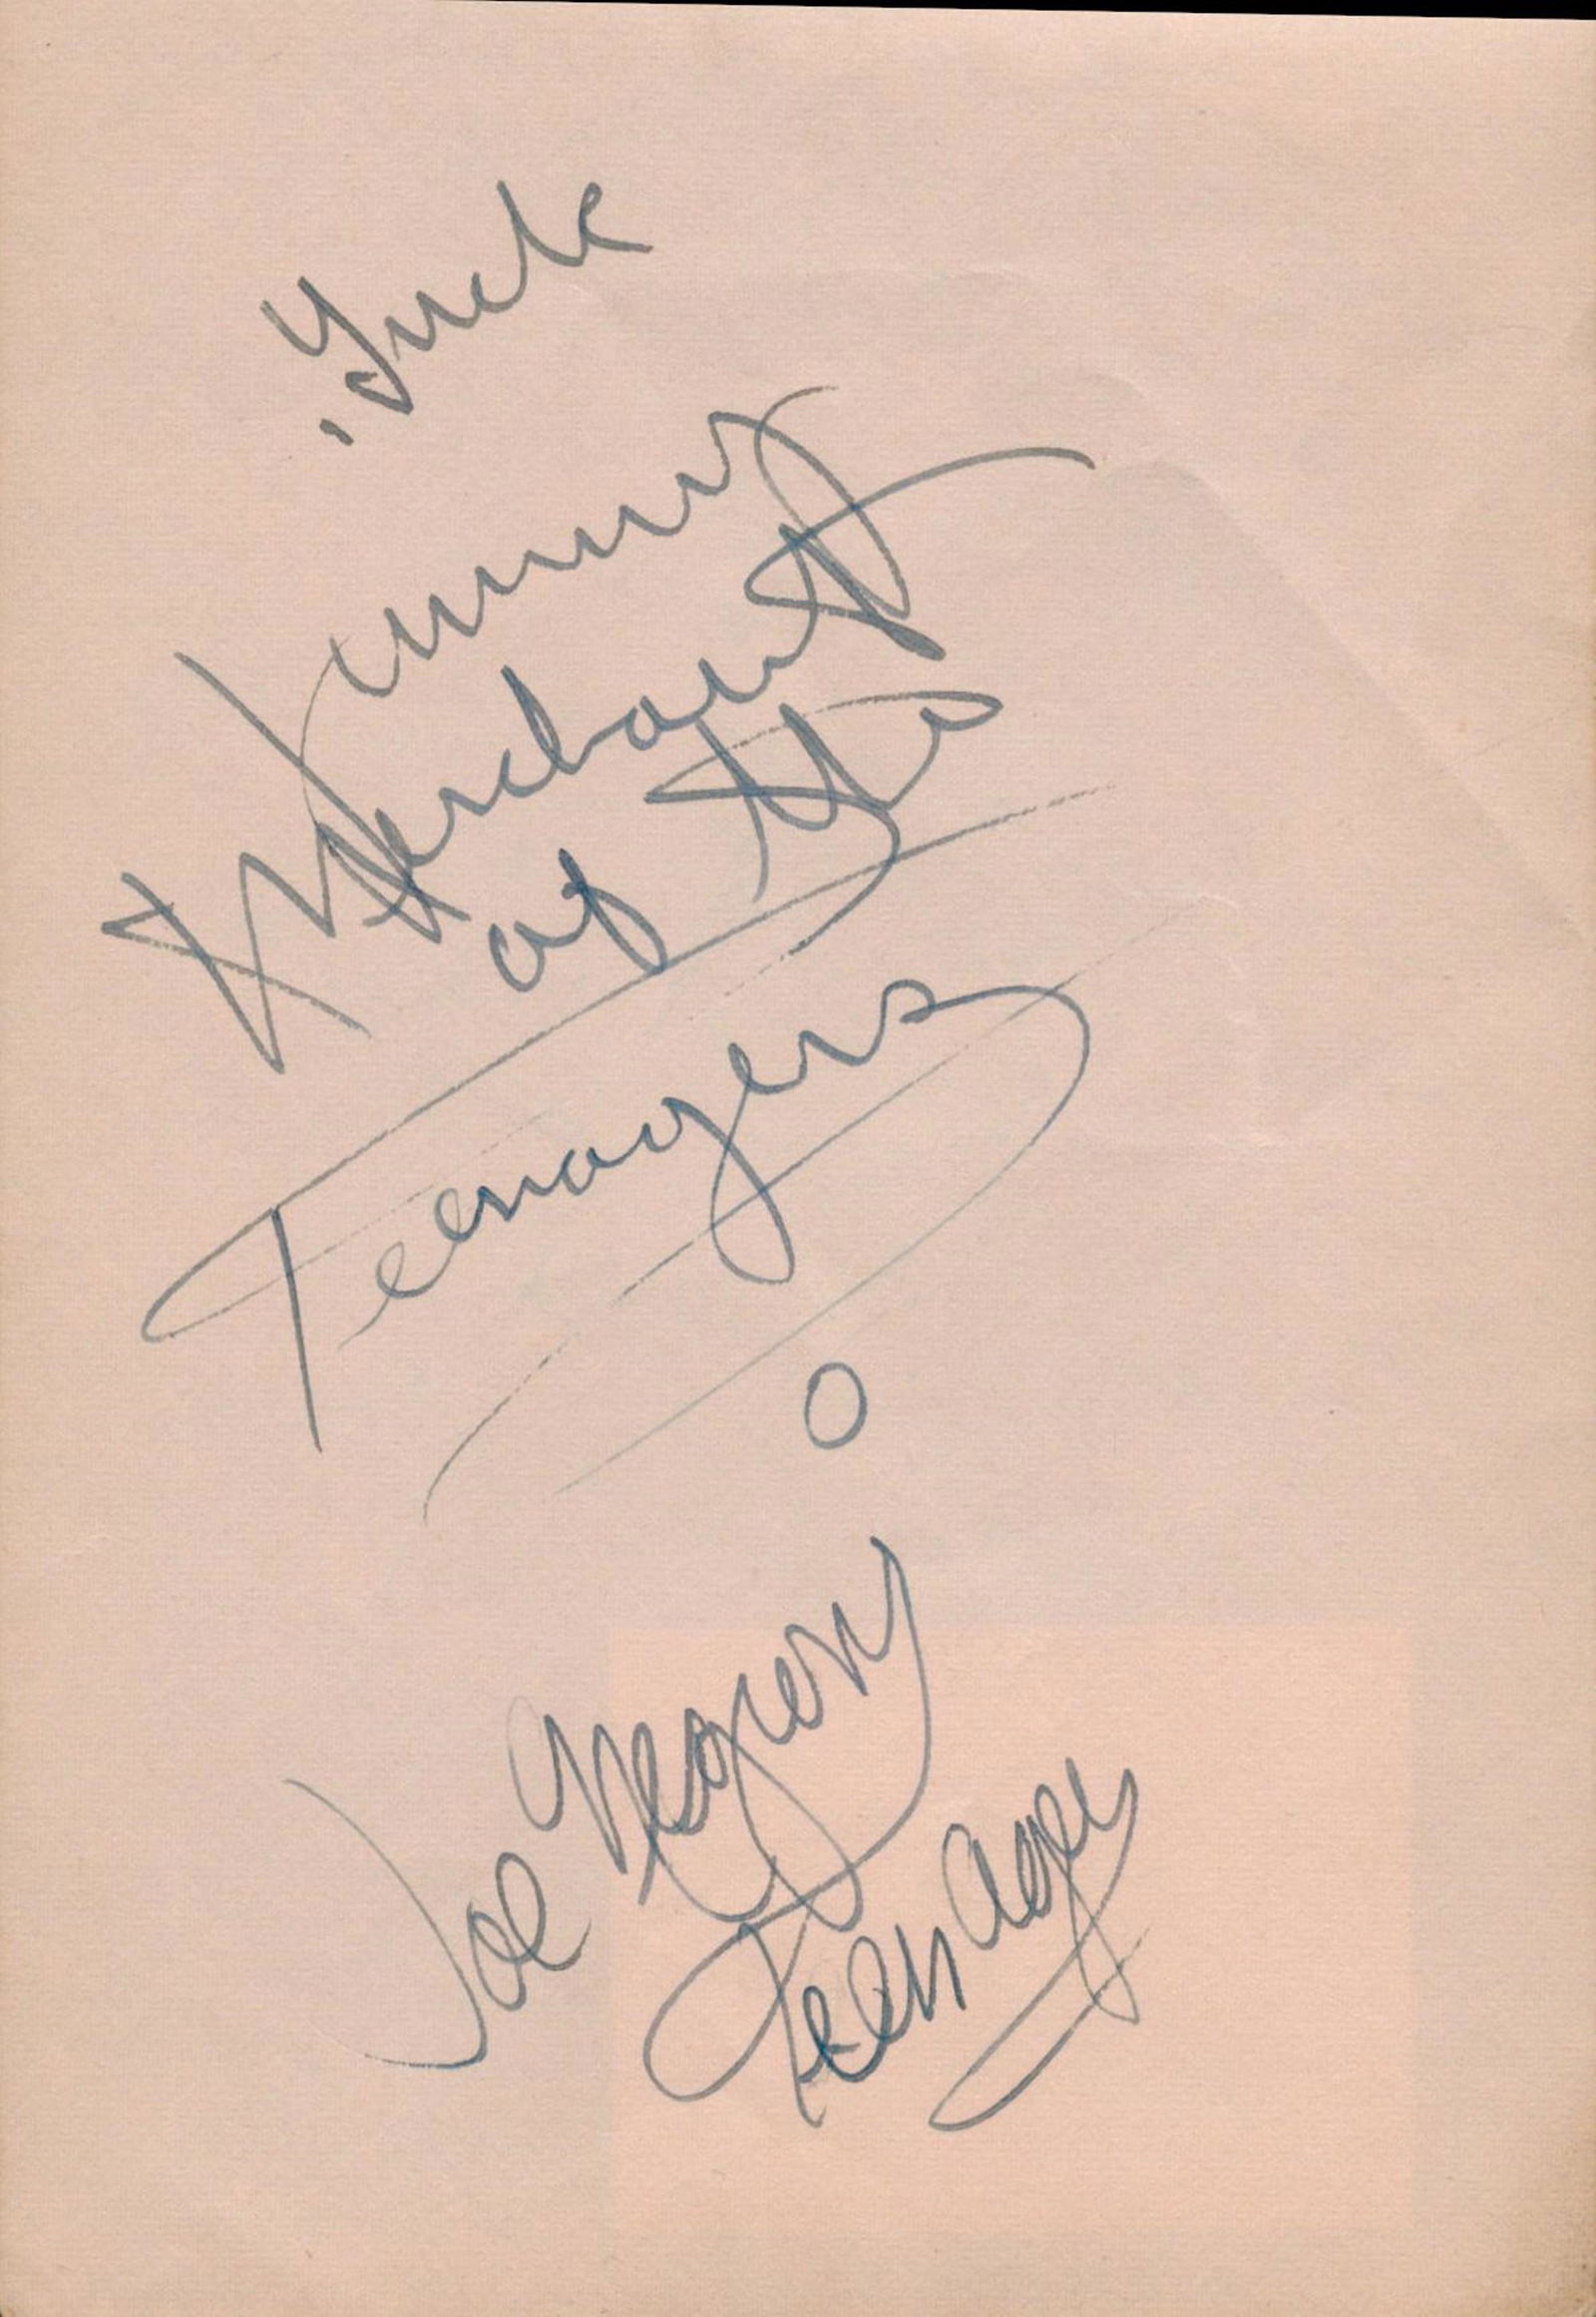 Jimmy
Merchant
of the
Teenagers
Joe Negroni
Teen Ager